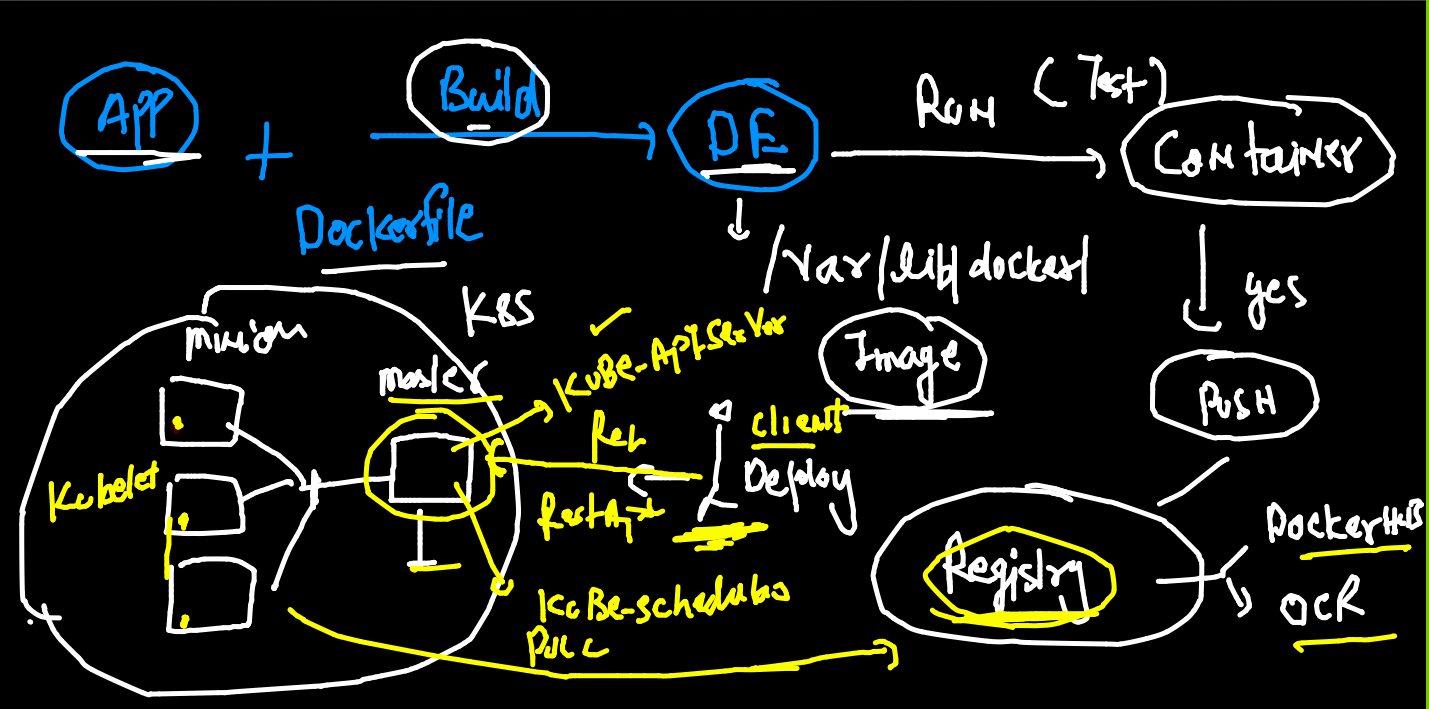 APP
+
Build
Dockerfile
DE
RUN
(Test)
Container
/var/lib/docker/
Image
yes
PUSH
Registry
DockerHUB
OCR
K8S
minion
master
Kubelet
KuBe-ApI-SerVer
Client
Deploy
RestApI
KuBe-scheduler
Pull